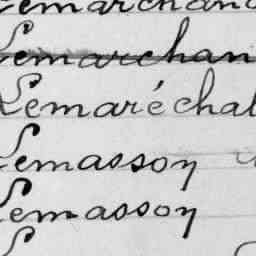 Lemarchand
Lemarchan
Lemaréchal
Lemasson
Lemasson